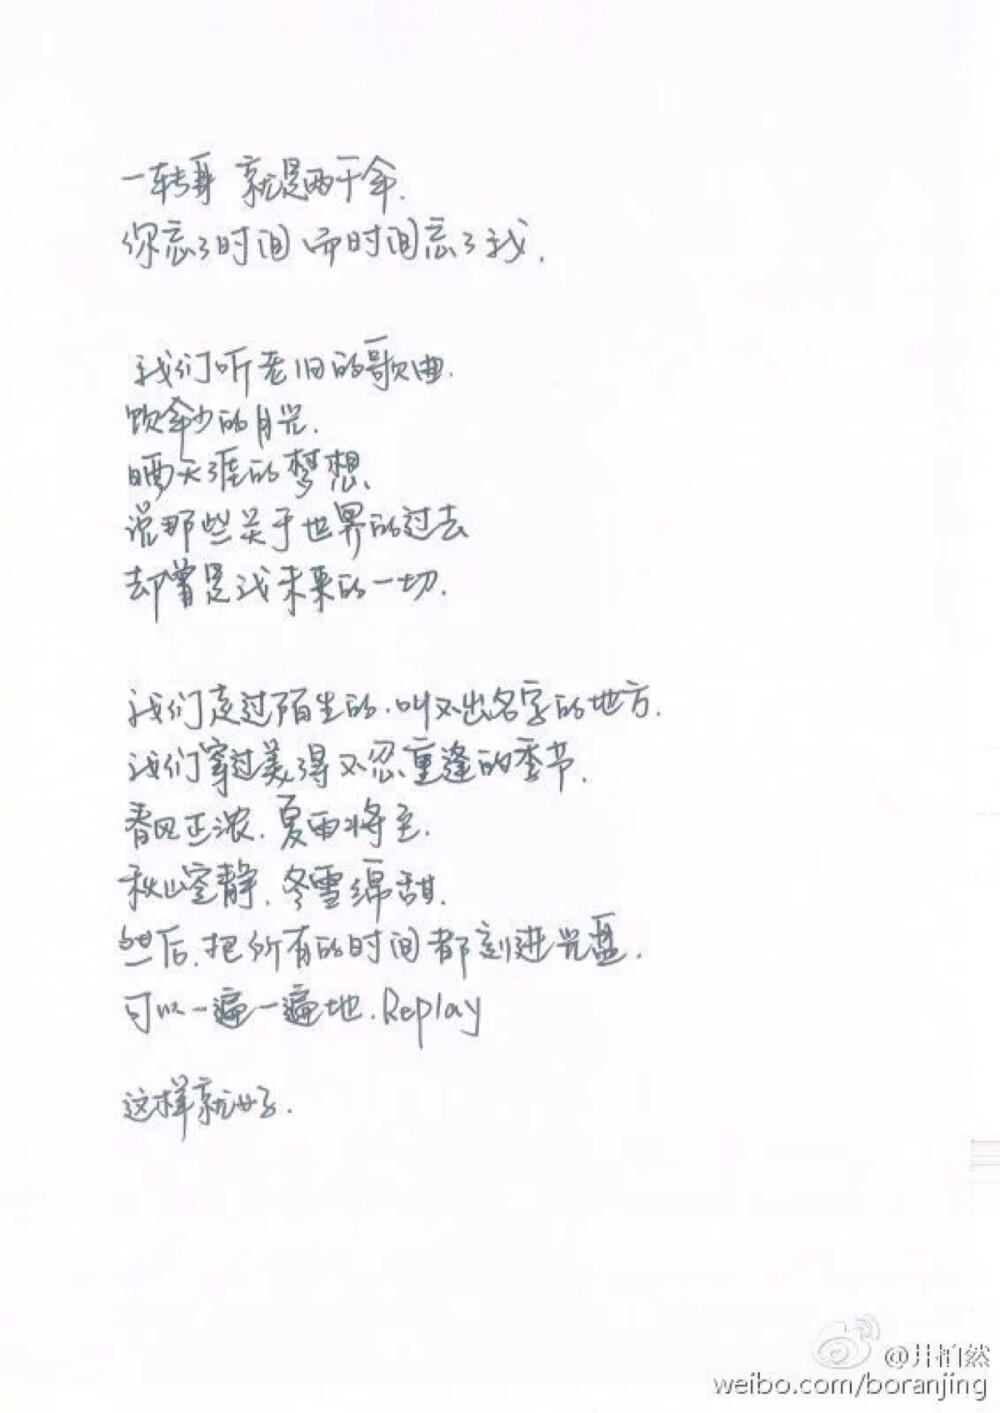 一转身 就是两千年.
你忘了时间 而时间忘了我.
我们听老旧的歌曲.
饮年少的月光.
晒天涯的梦想.
说那些关于世界的过去
却曾是我未来的一切.
我们走过陌生的.叫不出名字的地方.
我们穿过美得不忍重逢的季节.
春风正浓.夏雨将至.
秋山空静.冬雪绵甜.
然后.把所有的时间都刻进光盘.
可以一遍一遍地.Replay
这样就好.
@井柏然
weibo.com/boranjing